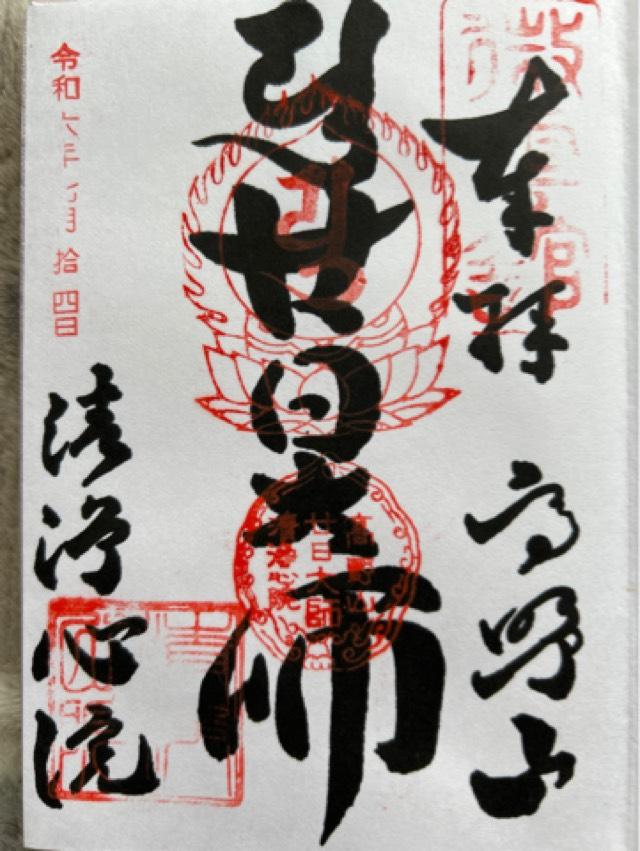 奉拝
高野山
廿日大師
高野山
廿日大師
清浄心院
令和六年九月拾四日
清浄心院